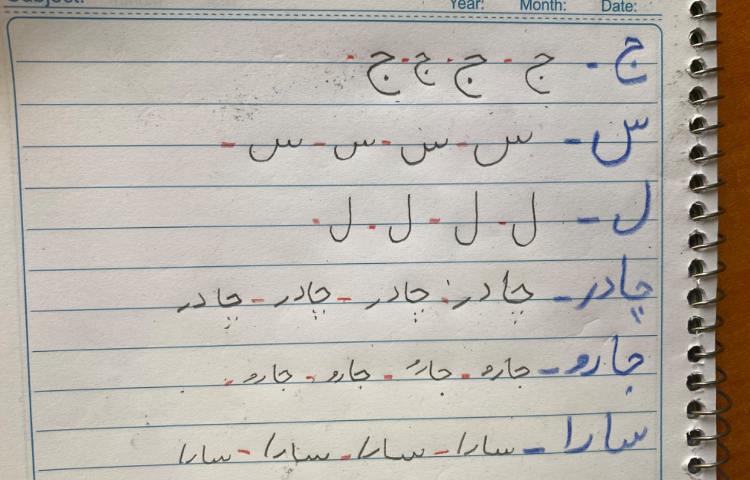 Subject: Year: Month: Date:
ج - ج - ج - ج - ج -
س - س - س - س - س -
ل - ل - ل - ل - ل -
چادر - چادر - چادر - چادر - چادر
جارو - جارو - جارو - جارو - جارو -
سارا - سارا - سارا - سارا - سارا